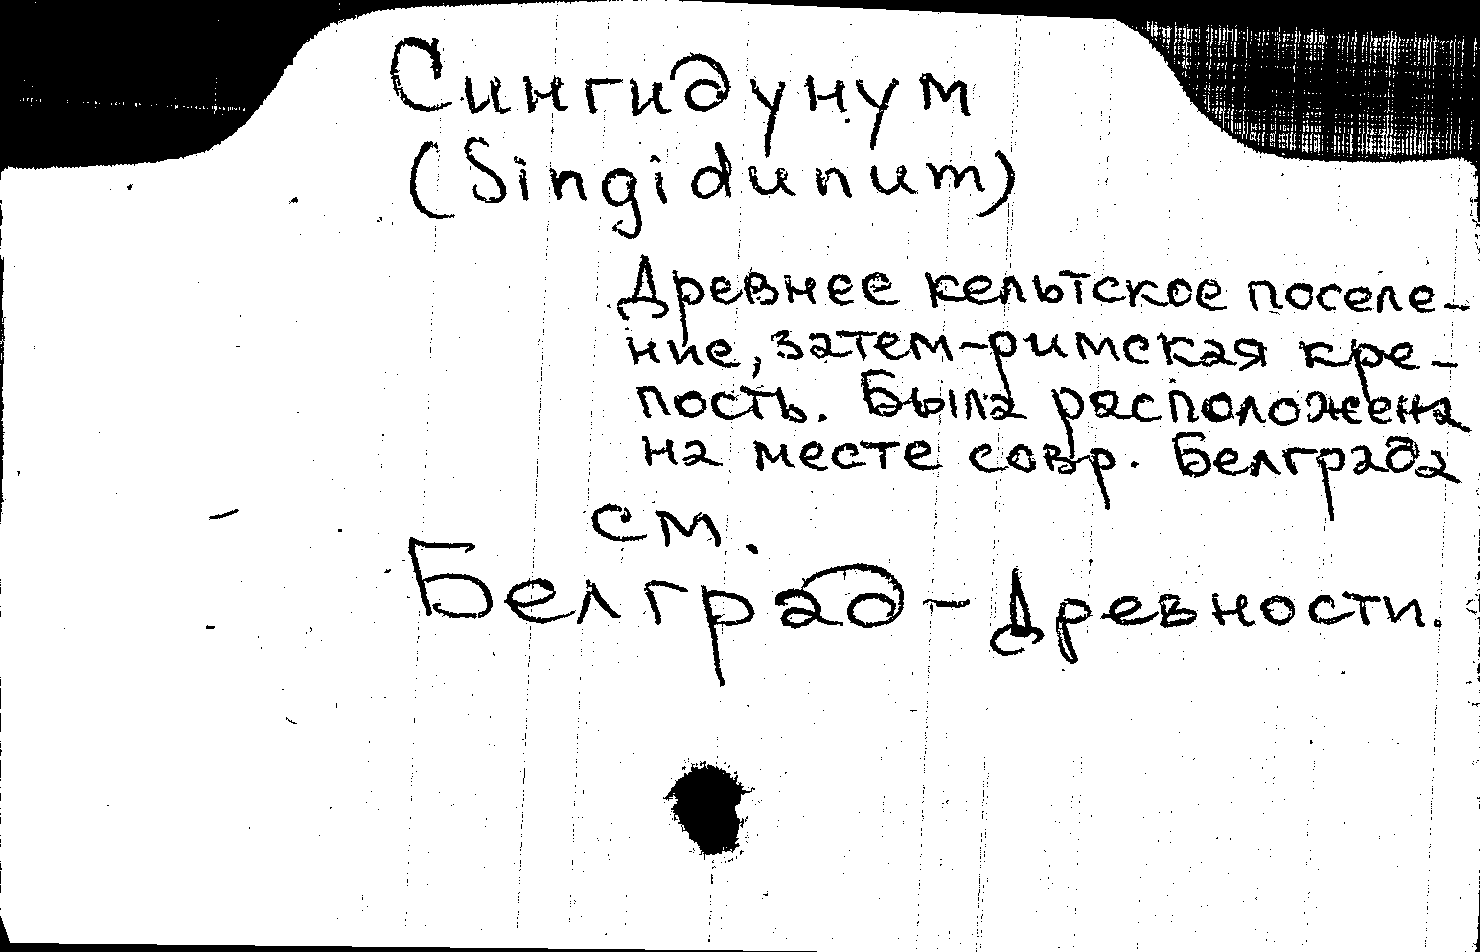 Сингидунум
(Singidunum)
Древнее кельтское поселе-
ние, затем-римская кре-
пость. Была расположена
на месте совр. Белграда
см.
Белград - Древности.